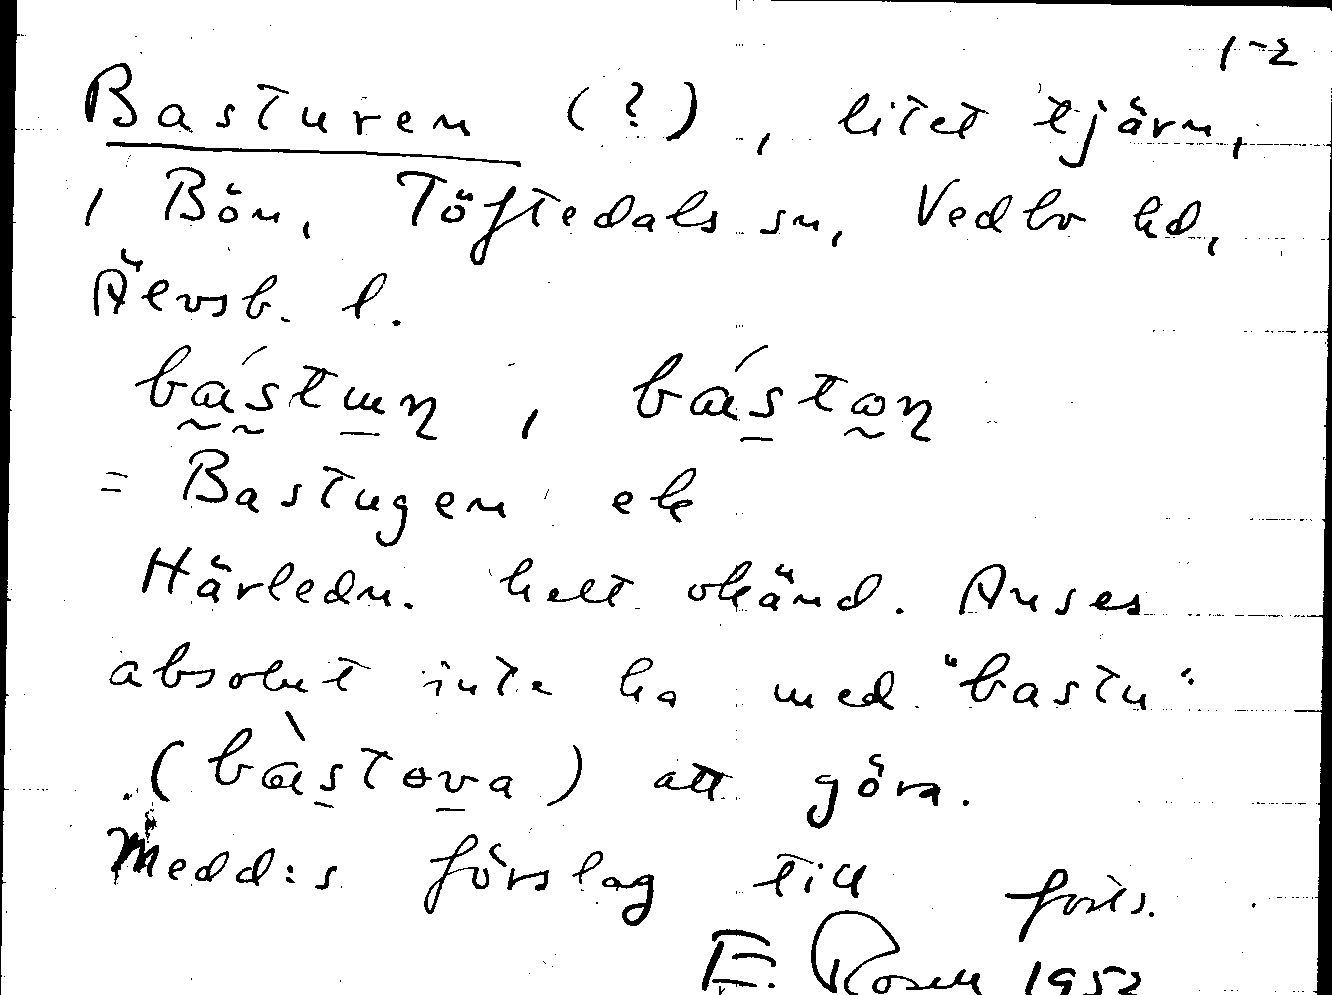 1-2
Basturen (?), litet tjärn,
i Bön, Töftedals sn, Vedbo hd,
Älvsb. l.
= Bastugen ek
Härledn. helt okänd. Anses
absolut inte ha med "bastu"
(bàstova) att göra.
Medd:s förslag till forts.
E. Rosell 1952